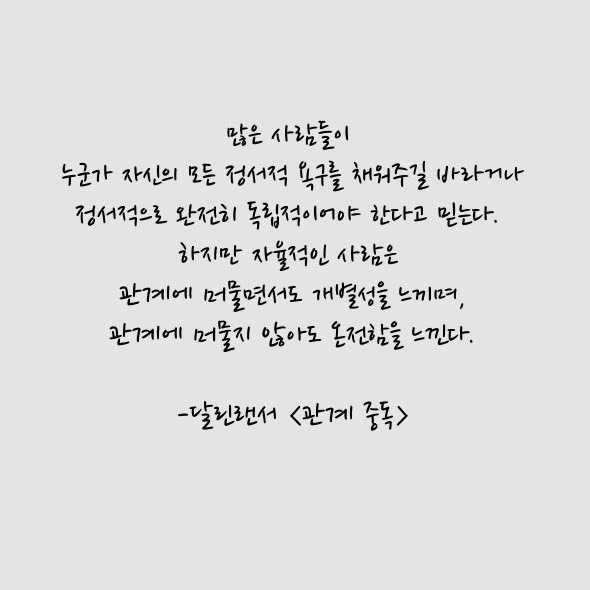 많은 사람들이
누군가 자신의 모든 정서적 욕구를 채워주길 바라거나
정서적으로 완전히 독립적이어야 한다고 믿는다.
하지만 자율적인 사람은
관계에 머물면서도 개별성을 느끼며,
관계에 머물지 않아도 온전함을 느낀다.
-달린랜서 <관계 중독>